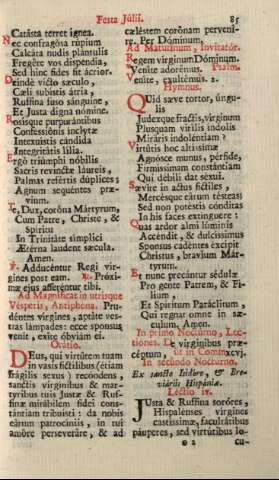 Festa Júlii. 85
Catásta terret ígnea.
Nec confragósa rúpium
Calcáta nudis plantulis
Fregére vos dispendia,
Sed hinc fides fit ácrior.
Deinde victo sæculo,
Cæli subístis átria,
Ruffina fuso sánguine,
Et Justa digna nómine.
Rosísque purpurántibus
Confessiónis ínclytæ
Intexuístis cándida
Integritátis lilia.
Ergò triúmphi nóbilis
Sacris revínctæ láureis,
Palmas refértis dúplices:
Agnum sequéntes præ-
vium.
Te, Dux, coróna Mártyrum,
Cum Patre, Christe, &
Spíritu
In Trinitáte símplici
Æterna láudent sæcula.
Amen.
℣. Adducéntur Regi vir-
gines post eam. ℟. Próxi-
mæ ejus afferéntur tibi.
Ad Magnificat in utrisque
Vésperis, Antíphona. Pru-
déntes vírgines, aptáte ves-
tras lámpades: ecce sponsus
venit, exíte óbviàm ei.
Orátio.
Deus, qui virtútem tuam
in vasis fictílibus (étiam
frágilis sexus) recóndens,
sanctis virgínibus & mar-
týribus tuis Justæ & Ruf-
finæ mirábilem fidei cons-
tántiam tribuísti: da nobis
eárum patrocíniis, in tui
amóre perseveráre, & ad
cæléstem corónam perveni-
re. Per Dóminum.
Ad Matutínum, Invitatór.
Regem virginum Dóminum.
Venite adorémus. Psalm.
Venite, exultémus. 2.
Hymnus.
Quid sæve tortor, úngu-
lis
Judexque fractis, vírginum
Plusquam virílis índolis
Miráris indoléntiam?
Virtútis hoc altíssimæ
Agnósce munus, pérfide,
Firmíssimam constántiam
Qui débili dat sexui.
Sævíre in actus fíctiles,
Mercésque eárum tésteas
Sed non potéstis cónditas
In his faces extínguere:
Quas ardor almi lúminis
Accéndit, & dulcíssimus
Sponsus cadéntes éxcipit
Christus, bravíum Már-
tyrum.
Et nunc precántur sédulæ
Pro gente Patrem, & Fí-
lium,
Et Spíritum Paráclitum,
Qui regnat omne in sæ-
culum, Amen.
In primo Noctúrno, Lec-
tiónes. De virgínibus præ-
céptum, ut in Comm. xcvj.
In secúndo Noctúrno.
Ex sancto Isidóro, & Bre-
viáriis Hispániæ.
Léctio iv.
Justa & Ruffina soróres,
Hispalénses vírgines
castíssimæ, facultátibus
páuperes, sed virtútibus lo-
cu-